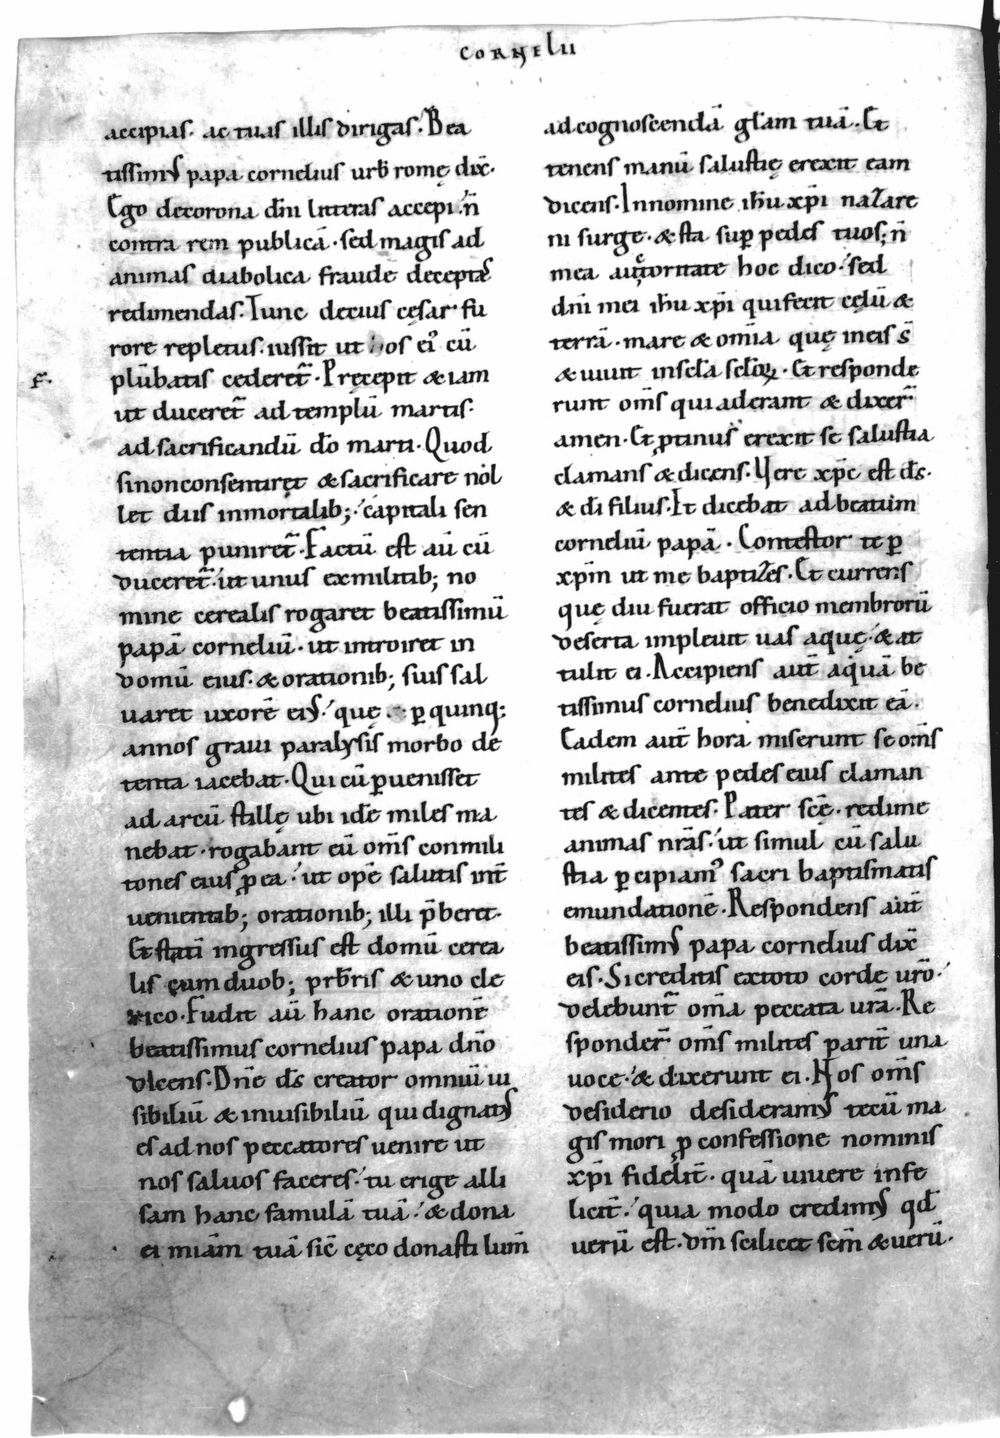 CORNELII
accipias. ac tuas illis dirigas. Bea
tissimꝰ papa cornelius urb̄ romę dix̄.
Ego decorona dn̄i litteras accepi. n̄
contra rem publicā. sed magis ad
animas diabolica fraude deceptas
redimendas. Tunc decius cęsar fu
rore repletus. iussit ut os eiꝰ cū
plūbatis cederet̄. Pręcepit & iam
f.
ut duceret̄ ad templū martis.
ad sacrificandū d̄o marti. Quod
sinonconsentiręt & sacrificare nol
let diis inmortalib; capitali sen
tentia puniret̄. Factū est aū cū
duceret̄ ut unus exmilitib; no
mine cerealis rogaret beatissimū
papā corneliū. ut introiret in
domū eius. & orationib; suis sal
uaret uxorē eiꝰ. quę ꝑ quinq;
annos graui paralysis morbo de
tenta iacebat. Qui cū ꝑuenisset
ad arcū stillę ubi idē miles ma
nebat. rogabant eū om̄s conmili
tones eius ꝓ ea. ut opē salutis int̄
uenientib; orationib; illi p̄beret.
Et statī ingressus est domū cerea
lis cum duob; prb̄ris & uno cle
rico. Fudit aū hanc orationē
beatissimus cornelius papa dn̄o
dicens. Dn̄e d̄s creator omniū ui
sibiliū & inuisibiliū qui dignatꝰ
es ad nos peccatores uenire ut
nos saluos faceres. tu erige alli
sam hanc famulā tuā. & dona
ei miam̄ tuā sic̄ cęco donasti lum̄
ad cognoscendā gl̄am tuā. Et
tenens manū salustię erexit eam
dicens. Innomine ihū xp̄i nazare
ni surge. & sta suꝑ pedes tuos; n̄
mea auctoritate hoc dico. sed
dn̄i mei ihū xp̄i qui fecit cęlū &
terrā. mare & om̄ia quę ineis s̄
& uiuit insc̄la sc̄loꝝ. Et responde
runt om̄s qui aderant & dixer̄
amen. Et ꝓtinus erexit se salustia
clamans & dicens. Vere xp̄c est d̄s.
& d̄i filius. Et dicebat ad beatum
corneliū papā. Contestor te ꝑ
xp̄m ut me baptizes. Et currens
quę diu fuerat officio membrorū
deserta impleuit uas aquę. & at
tulit ei. Accipiens aut̄ aquā be
tissimus cornelius benedixit eā.
Eadem aut̄ hora miserunt se om̄s
milites ante pedes eius claman
tes & dicentes. Pater sc̄e. redime
animas nr̄as. ut simul cū salu
stia ꝑcipiamꝰ sacri baptismatis
emundationē. Respondens aut̄
beatissimꝰ papa cornelius dix̄
eis. Si creditis extoto corde ur̄o.
delebunt̄ om̄a peccata ur̄a. Re
sponder̄ om̄s milites parit̄ una
uoce. & dixerunt ei. Nos om̄s
desiderio desideramꝰ tecū ma
gis mori ꝓ confessione nominis
xp̄i fidelit̄. quā uiuere infe
licit̄. quia modo credimꝰ qd̄
uerū est. dm̄ scilicet sem̄ & uerū.